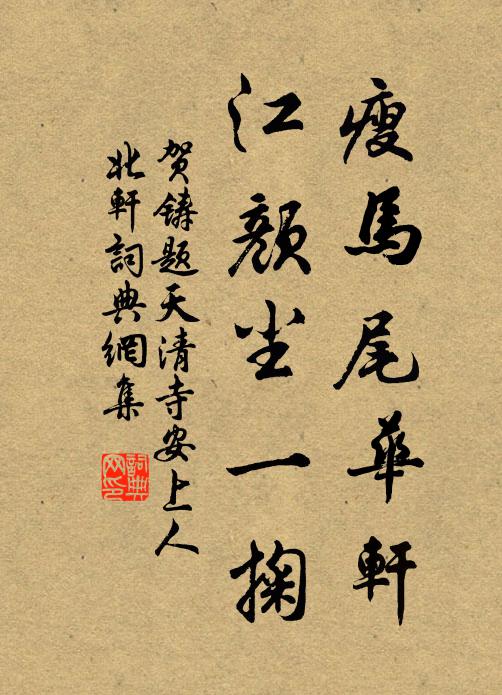 瘦馬尾華軒
江顏尘一掬
賀鑄題天清寺安上人
北軒詞典網集
詞典
网印